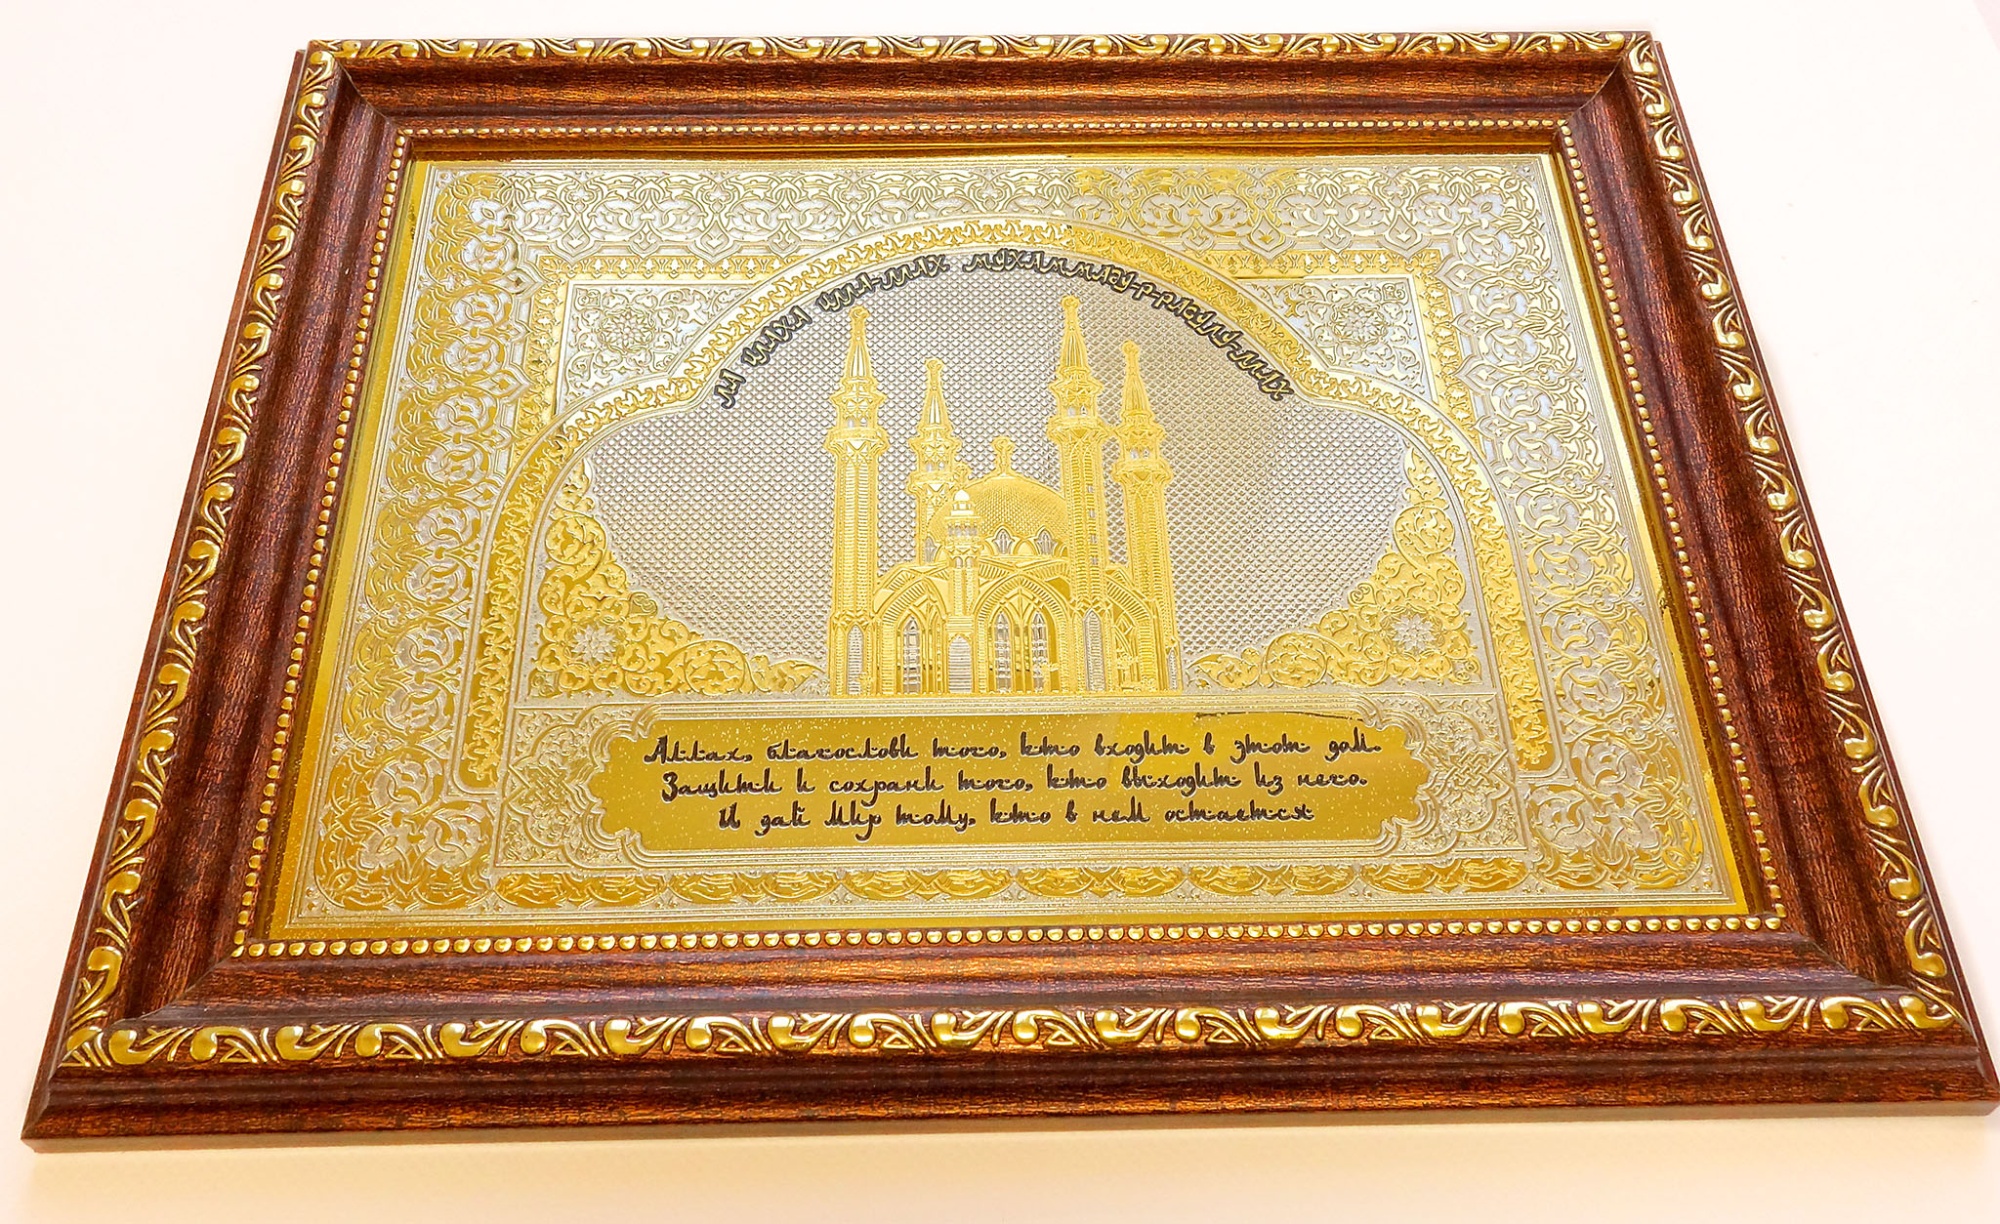 ЛА ИЛАХА ИЛЛА-ЛЛАХ МУХАММАДУ-Р-РАСУЛУ-ЛЛАХ
Аллах, благослови того, кто входит в этот дом.
Защити и сохрани того, кто выходит из него.
И дай Мир тому, кто в нем остается